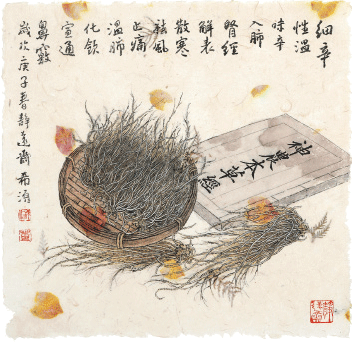 細辛
性溫
味辛
入肺
腎經
解表
散寒
祛風
止痛
溫肺
化飲
宣通
鼻竅
歲次庚子春靜
神農本草經